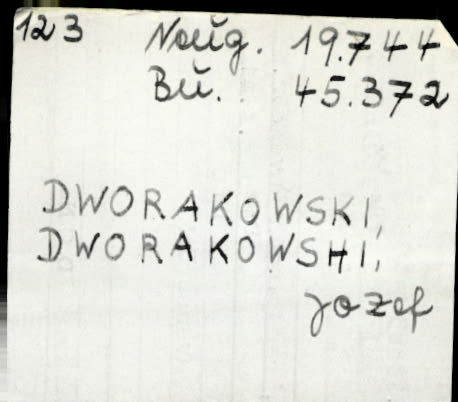 123 Neug. 19.744
Bu. 45.372
DWORAKOWSKI,
DWORAKOWSHI,
Jozef